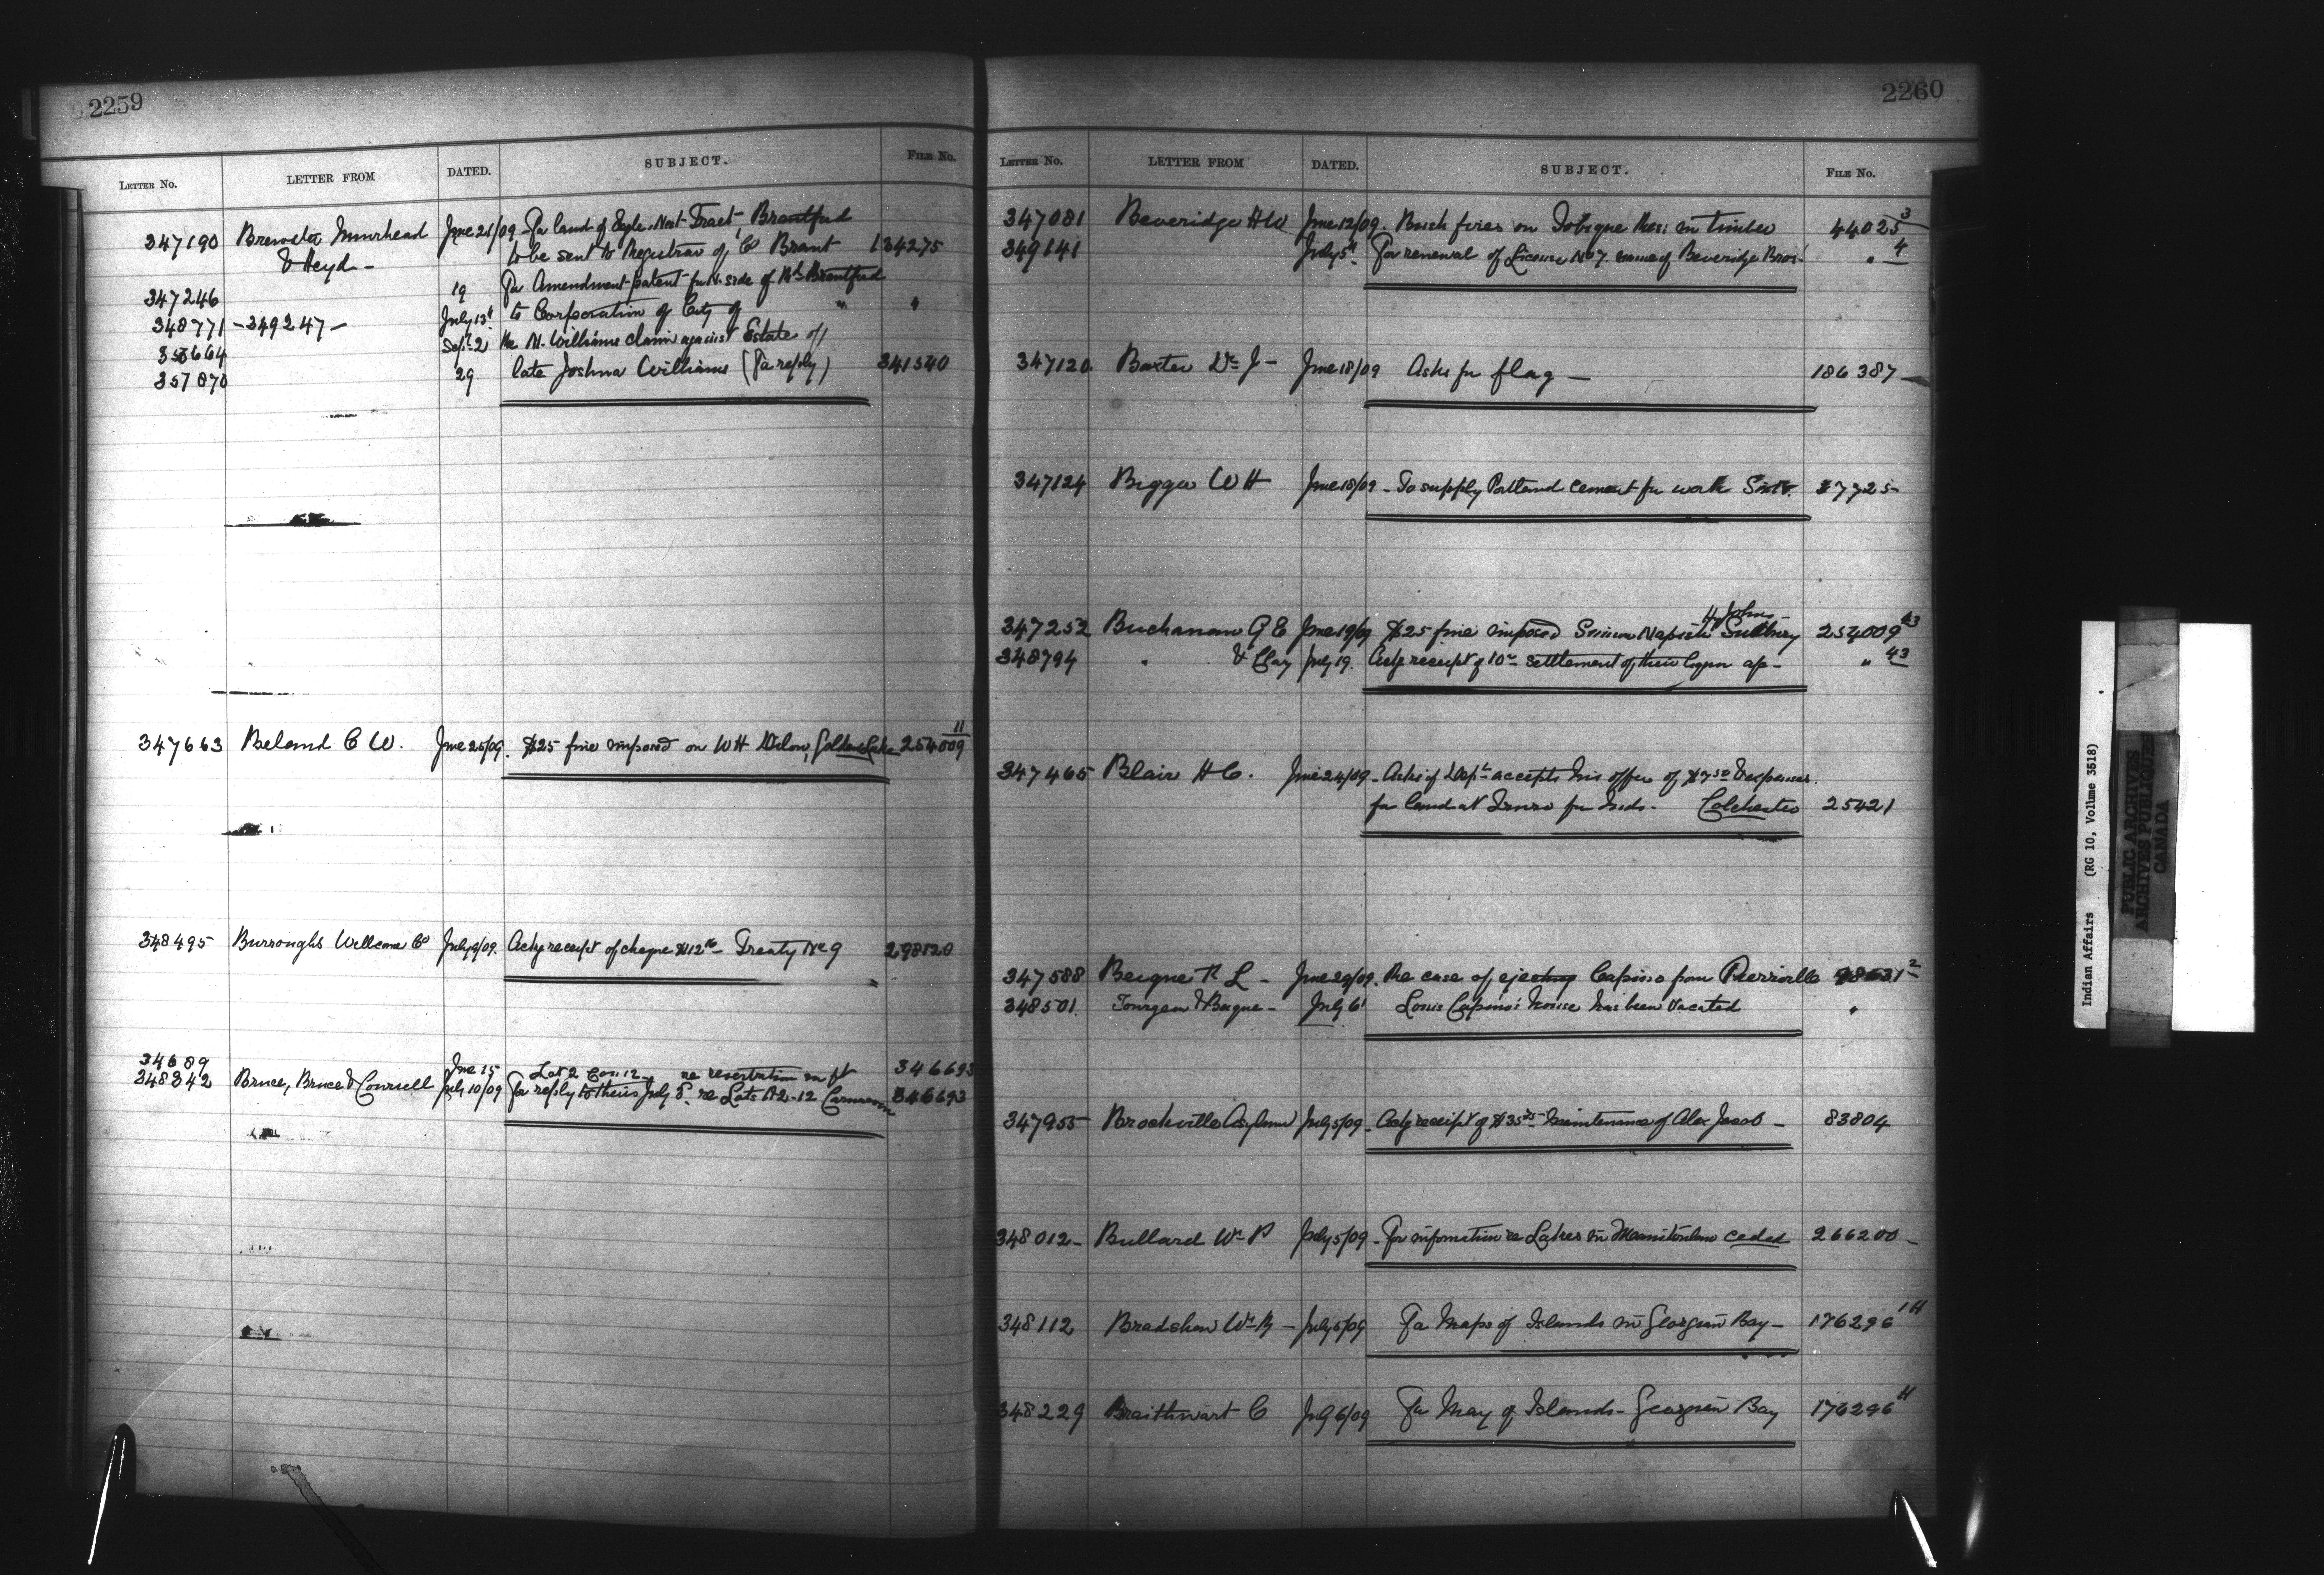 2259
LETTER No. LETTER FROM DATED. SUBJECT. FILE No.
347190 Brewster Muirhead June 21/09 For land of Eagle Nest Tract, Brantford
& Heyd - to be sent to Registrar of Co Brant 134275
347246 19 For Amendment patent for N. side of Brantford
348771 - 349247 - July 13 to Corporation of City of " "
353664 Sept 2 Re N. Williams claim against Estate of
357870 29 late Joshua Williams (For reply) 341540
347663 Beland C W. June 25/09. $25 fine imposed on W H Golden Lake 254009 11
348495 Burroughs Wellcome Co July 9/09. Ackg receipt of cheque $112 Treaty No 9 298120
34689 June 15 Lot 2 Con 12 re reservation in pt 346693
348342 Bruce, Bruce & Counsell July 10/09 For reply to theirs July 5. re Lots 2-12 346693
2260
LETTER No. LETTER FROM DATED. SUBJECT. FILE No.
347081 Beveridge H W June 12/09. Bush fires on Tobique Res: in timber 44025 3
349141 July 5 For renewal of License No 7. name of Beveridge Bros. " 4
347120 Baxter Dr J - June 18/09 Asks for flag - 186387 -
347124 Bigger W H June 18/09 - To supply Portland cement for work 37725
H John
347252 Buchanan G E June 19/09 $25 fine imposed Simon Sudbury 254009 43
348794 " & Clay July 19. Ackg receipt of 10 settlement of their a/c - " 43
347465 Blair H C. June 24/09 - Asks if Dept accepts his offer of $750 & expenses.
for land at Truro for Inds. Colchester 25421
347588 Beique P L - June 29/09. Re case of ejecting Capino from Pierreville 2
348501. & Beique - July 6 Louis Capino's house has been vacated "
347955 Brockville Asylum July 5/09 - Ackg receipt of $35 maintenance of Alex Jacob - 83804
348012 - Bullard Wm P July 5/09 - For information re Lakes in Manitoulin ceded 266200 -
348112 Bradshaw Wm - July 5/09 For Maps of Islands in Georgian Bay - 176296 1H
348229 Braithwart C July 6/09 For Map of Islands - Georgian Bay 176296 H
Indian Affairs (RG 10, Volume 3518)
PUBLIC ARCHIVES
ARCHIVES PUBLIQUES
CANADA